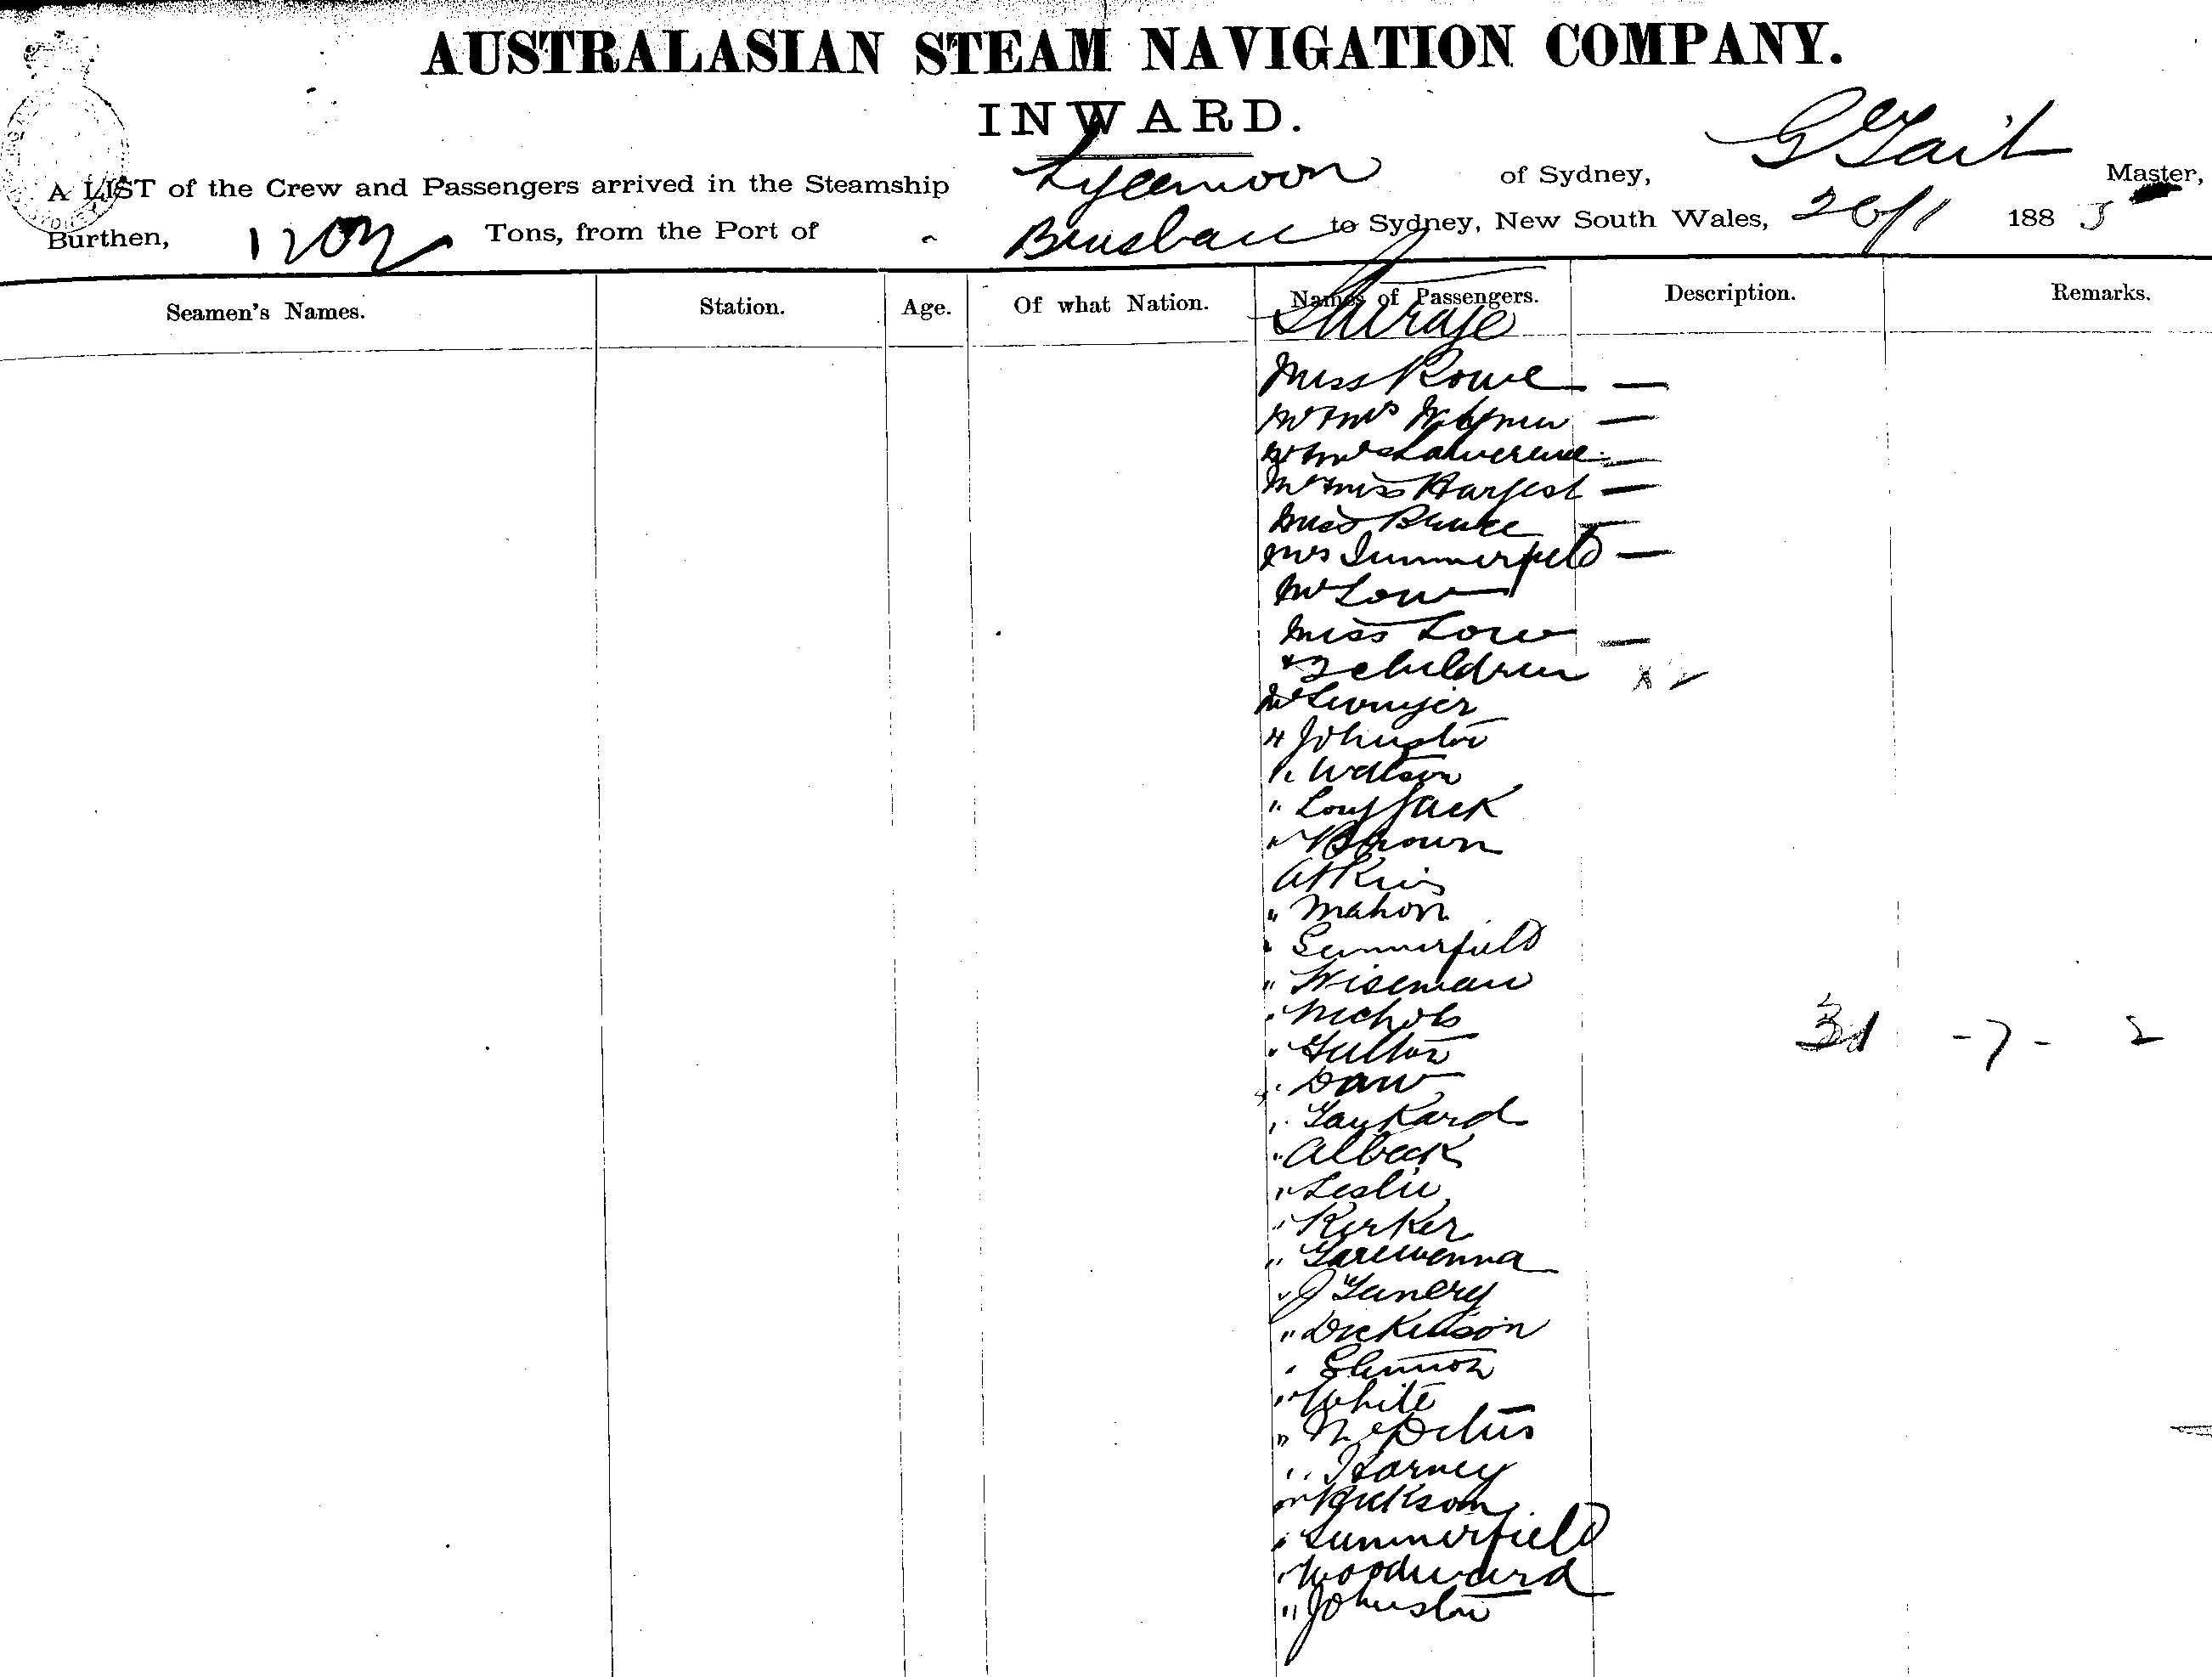 AUSTRALASIAN STEAM NAVIGATION COMPANY.
INWARD.
A LIST of the Crew and Passengers arrived in the Steamship Lyeemoon of Sydney, Master,
Burthen, Tons, from the Port of Brisbane to Sydney, New South Wales, 26/1 1885
Seamen's Names. Station. Age. Of what Nation. Names of Passengers. Description. Remarks.
Steerage
Miss Rowe —
Mr & Mrs —
Mr & Mrs Lawerence —
Mr & Miss Hargest —
Miss
Mrs Summerfield —
Mr Low
Miss Low —
& 2 children x 2
Mr
" Johnston
" Watson
" Long Jack
" Brown
Atkins
" Mahon
" Summerfield
" Wiseman
" Nichols
"
" Daw
"
" Albeck
" Leslie
" Kerker
"
" J
" Dickinson
"
" White
"
" Harney
" Hickson
" Summerfield
" Woodward
" Johnston
31 - 7 - 2